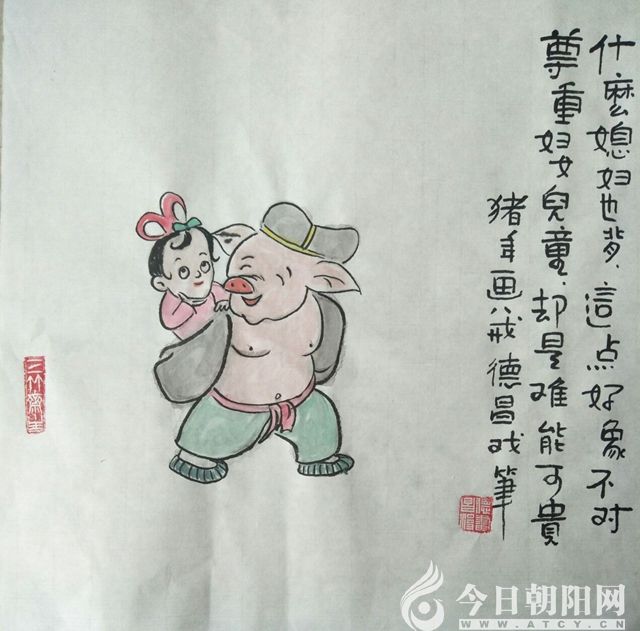 什麽媳妇也背，這点好象不对
尊重妇女兒童，却是难能可貴
猪年画八戒德昌戏筆
三竹齋主
今日朝阳网
WWW.ATCY.CN